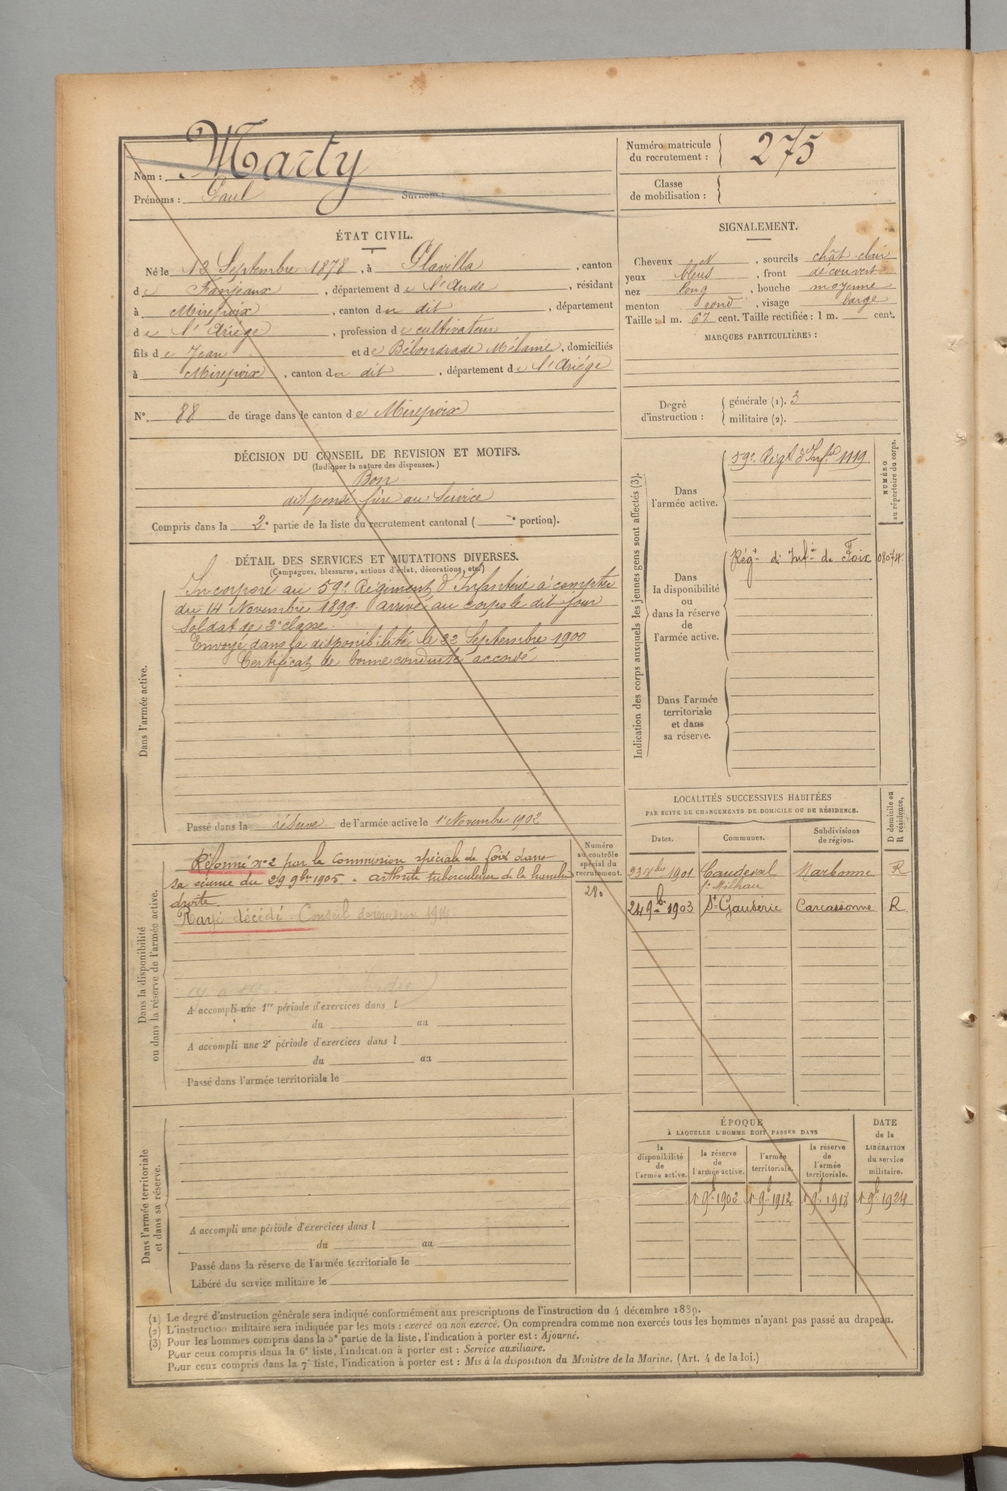 Nom : Marty
Prénoms : Paul Surnom :
Numéro matricule du recrutement : 275
Classe de mobilisation :
ÉTAT CIVIL.
Né le 12 Septembre 1878, à Plavilla, canton
de Fanjeaux, département de l'Aude, résidant
à Mirepoix, canton du dit, département
de l'Ariège, profession de cultivateur
fils de Jean et de Bélondrade Mélanie, domiciliés
à Mirepoix, canton du dit, département de l'Ariège
N° 88 de tirage dans le canton de Mirepoix
SIGNALEMENT.
Cheveux , sourcils chât clair
yeux bleus, front découvert
nez long, bouche moyenne
menton rond, visage large
Taille : 1 m. 67 cent. Taille rectifiée : 1 m. cent.
MARQUES PARTICULIÈRES :
Degré d'instruction : générale (1). 3
militaire (2).
DÉCISION DU CONSEIL DE REVISION ET MOTIFS.
(Indiquer la nature des dispenses.)
Bon
dispensé frère au service
Compris dans la 2e partie de la liste du recrutement cantonal ( e portion).
DÉTAIL DES SERVICES ET MUTATIONS DIVERSES.
(Campagnes, blessures, actions d'éclat, décorations, etc.)
Dans l'armée active.
Incorporé au 59e Régiment d'Infanterie à compter
du 14 Novembre 1899. arrivé au corps le dit jour
Soldat de 2e classe.
Envoyé dans la disponibilité le 22 Septembre 1900
Certificat de bonne conduite accordé
Passé dans la réserve de l'armée active le 1er Novembre 1902
Indication des corps auxquels les jeunes gens sont affectés (3).
NUMÉRO au répertoire du corps.
Dans l'armée active.
59e Régt d'Infie 1119
Dans la disponibilité ou dans la réserve de l'armée active.
Régt d'Infie de Foix 08074
Dans l'armée territoriale et dans sa réserve.
Dans la disponibilité ou dans la réserve de l'armée active.
Numéro au contrôle spécial du recrutement.
Réformé n° 2 par la commission spéciale de Foix dans
sa séance du 29 9bre 1905. arthrite tuberculeuse de la hanche
droite.
Rayé décédé. Conseil de revision
A accompli une 1re période d'exercices dans l
du au
A accompli une 2e période d'exercices dans l
du au
Passé dans l'armée territoriale le
LOCALITÉS SUCCESSIVES HABITÉES
PAR SUITE DE CHANGEMENTS DE DOMICILE OU DE RÉSIDENCE.
D domicile ou R résidence.
Dates. Communes. Subdivisions de région.
1901 Caudeval Narbonne R
24 9bre 1903 St Gauderic Carcassonne R
Dans l'armée territoriale et dans sa réserve.
A accompli une période d'exercices dans l
du au
Passé dans la réserve de l'armée territoriale le
Libéré du service militaire le
ÉPOQUE
À LAQUELLE L'HOMME DOIT PASSER DANS
la disponibilité de l'armée active.
la réserve de l'armée active.
l'armée territoriale.
la réserve de l'armée territoriale.
DATE de la LIBÉRATION du service militaire.
1 9b 1902 1 9b 1912 1 9b 1918 1 9b 1924
(1) Le degré d'instruction générale sera indiqué conformément aux prescriptions de l'instruction du 4 décembre 1889.
(2) L'instruction militaire sera indiquée par les mots : exercé ou non exercé. On comprendra comme non exercés tous les hommes n'ayant pas passé au drapeau.
(3) Pour les hommes compris dans la 5e partie de la liste, l'indication à porter est : Ajourné.
Pour ceux compris dans la 6e liste, l'indication à porter est : Service auxiliaire.
Pour ceux compris dans la 7e liste, l'indication à porter est : Mis à la disposition du Ministre de la Marine. (Art. 4 de la loi.)